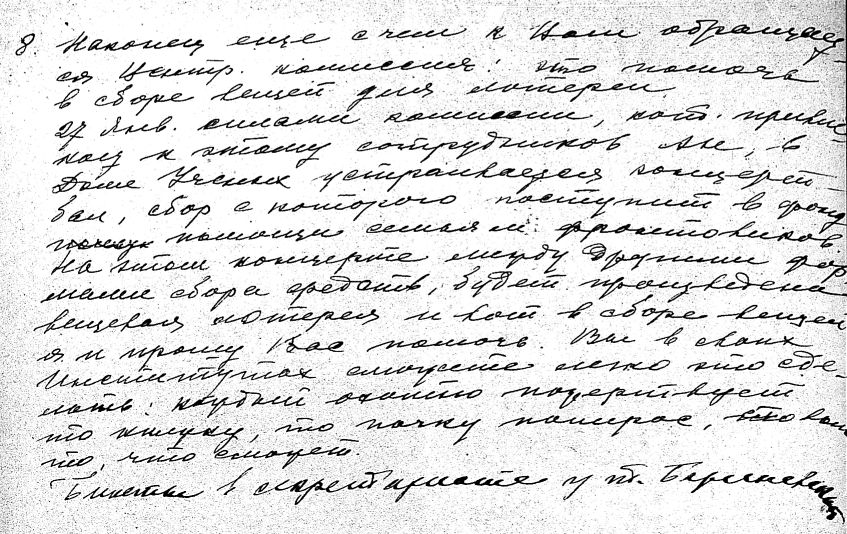 8. Наконец еще с чем к Вам обращает-
ся Центр. комиссия: это помочь
в сборе вещей для лотереи.
27 Янв. силами комиссии, кот. привле-
кац к этому сотрудников Ан, в
Доме Ученых устраивается концерт-
бал, сбор с которого поступит в фонд
помощи семьям фронтовиков.
На этом концерте между другими фор-
мами сбора средств, будет произведена
вещевая лотерея и вот в сборе вещей
я и прошу Вас помочь. Вы в своих
Институтах сможете легко это сде-
лать: каждый охотно пожертвует
то книжку, то пачку папирос,
то, что сможет.
Билеты в секретариате у т.